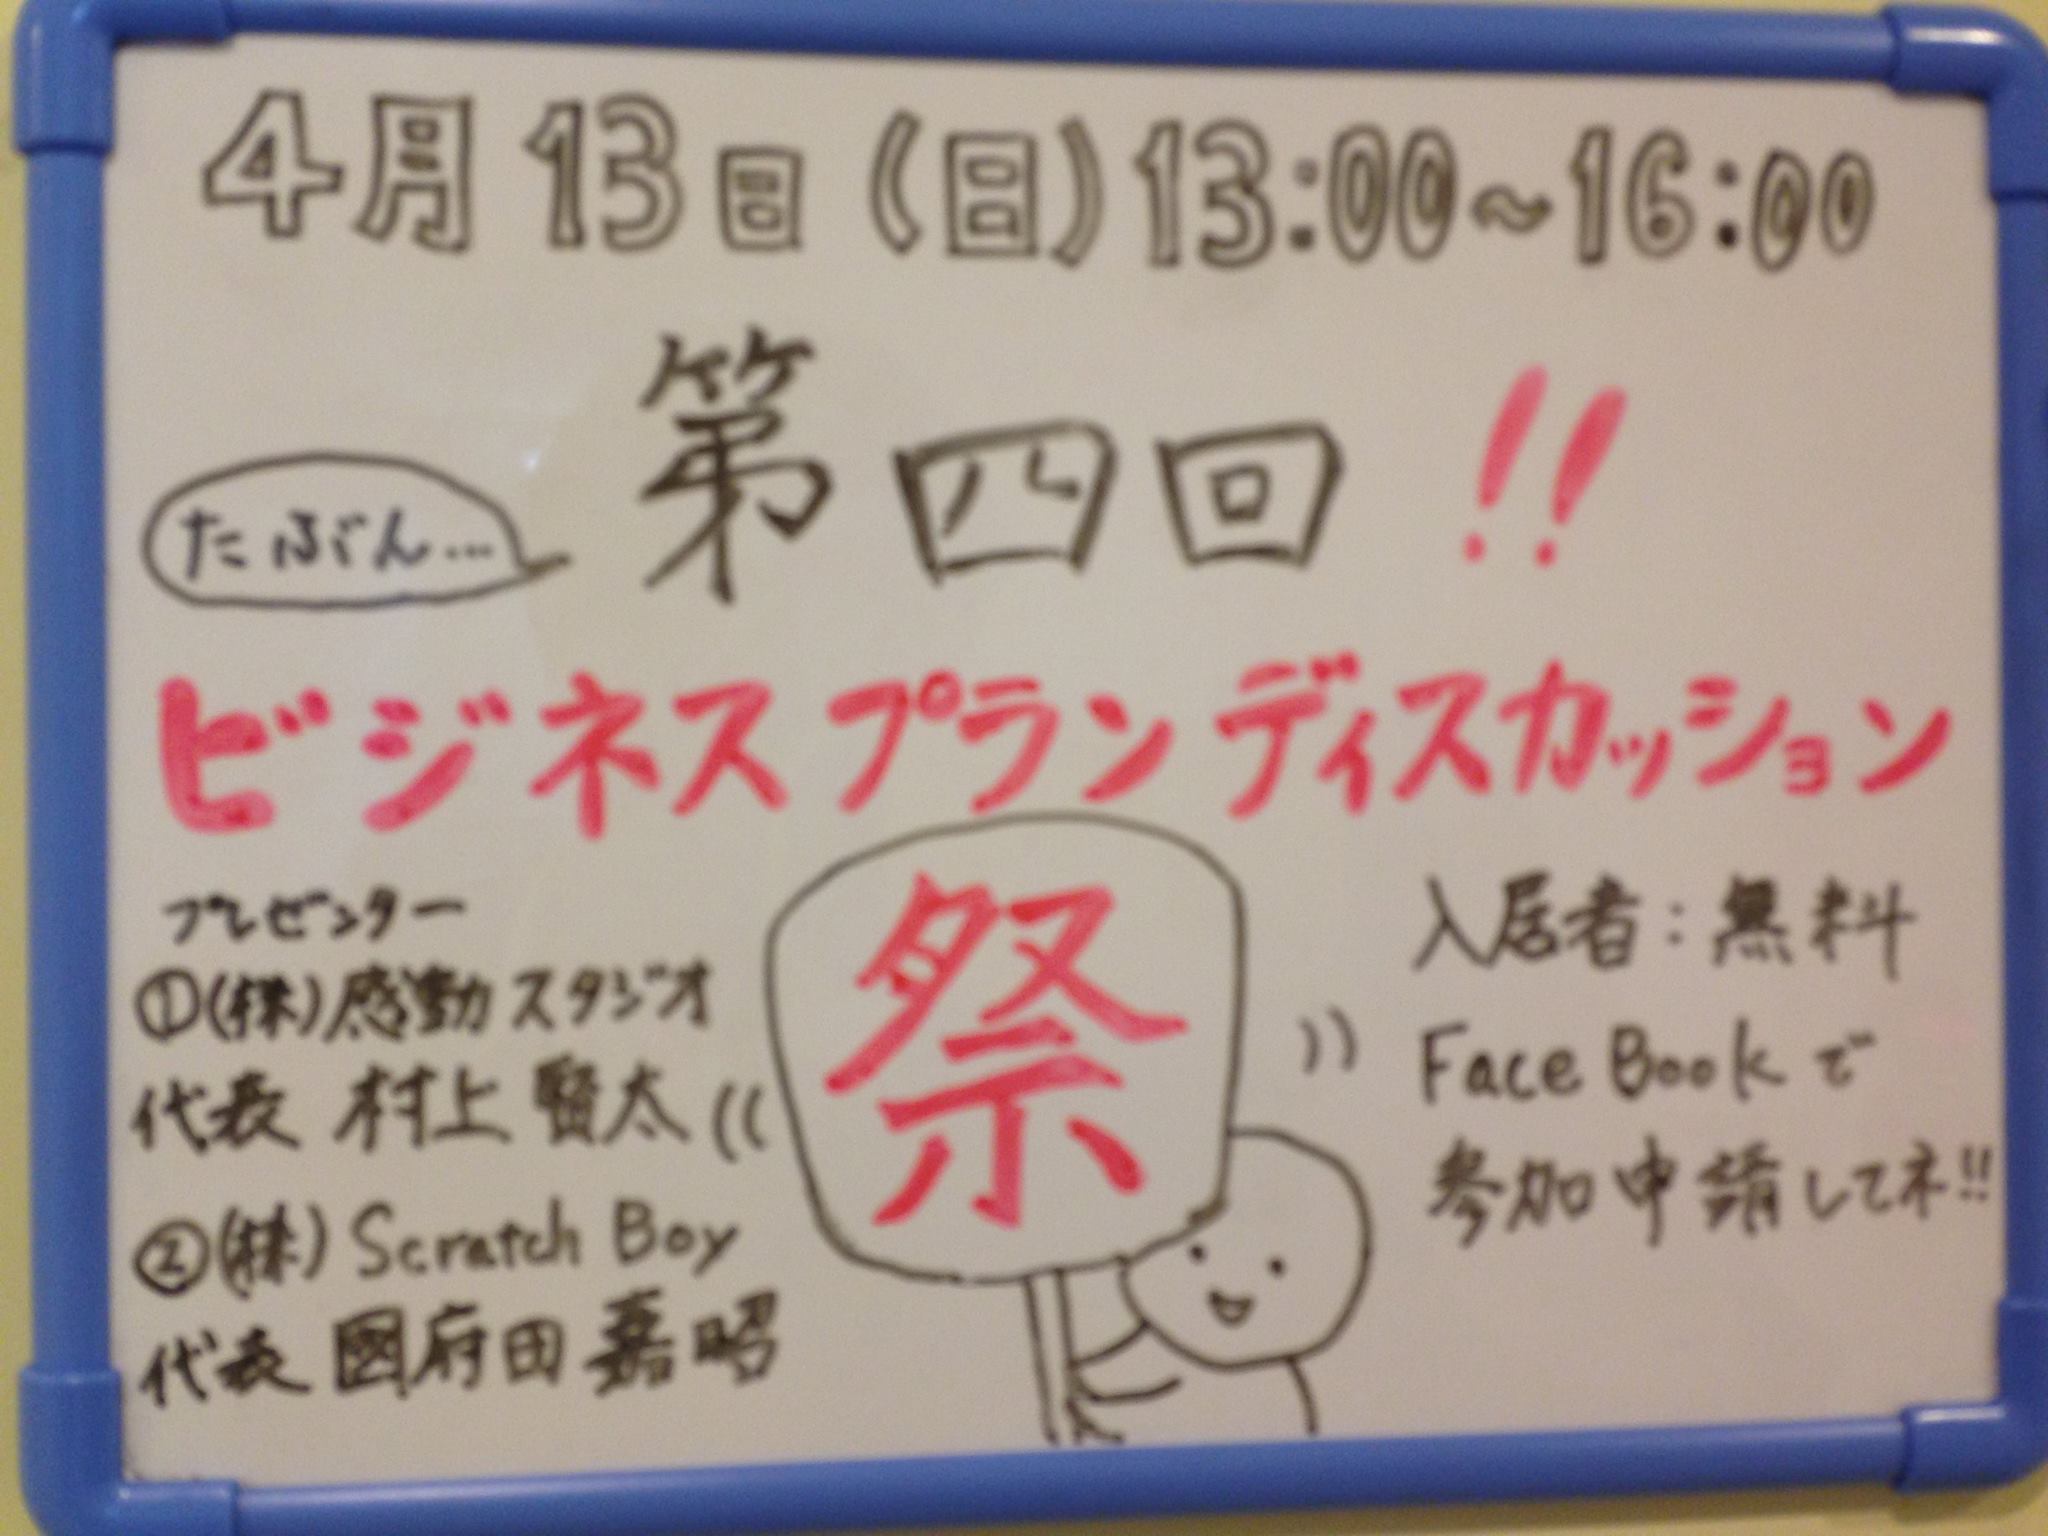 4月13日(日)13:00~16:00
たぶん…
第四回!!
ビジネスプランディスカッション
祭
プレゼンター
①(株)感動スタジオ
代表 村上 賢太
②(株)Scratch Boy
代表 國府田 嘉昭
入居者:無料
FaceBookで
参加申請してネ!!